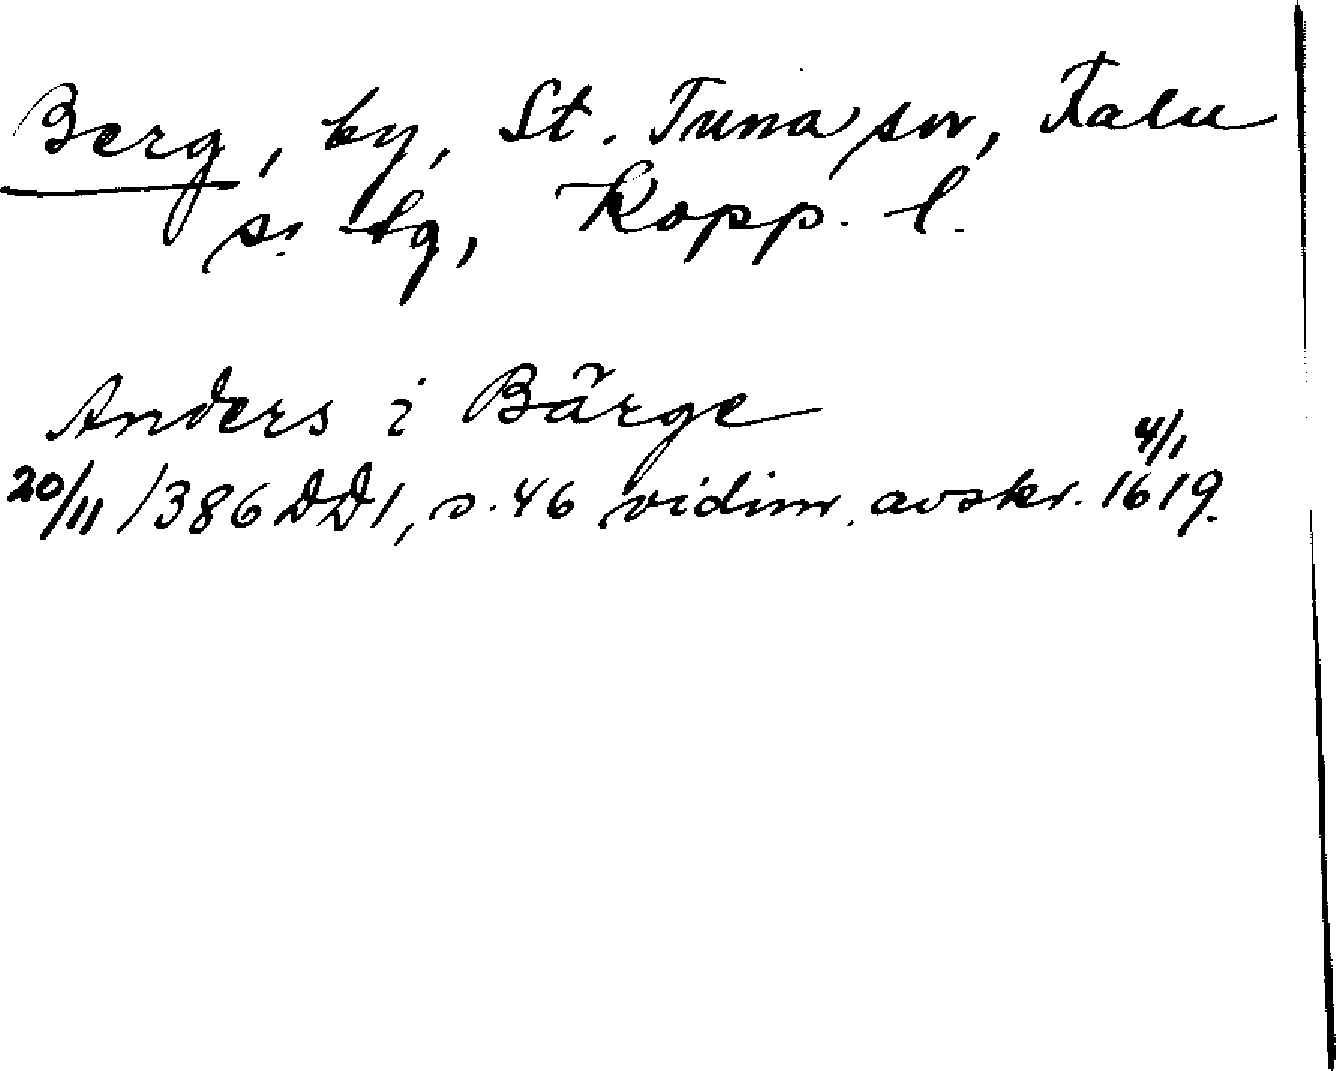 Berg, by, St. Tuna sn, Falu
s. tg, Kopp. l.
Anders i Bärge
20/11 1386 DD1, s. 46 vidim. avskr. 4/1 1619.